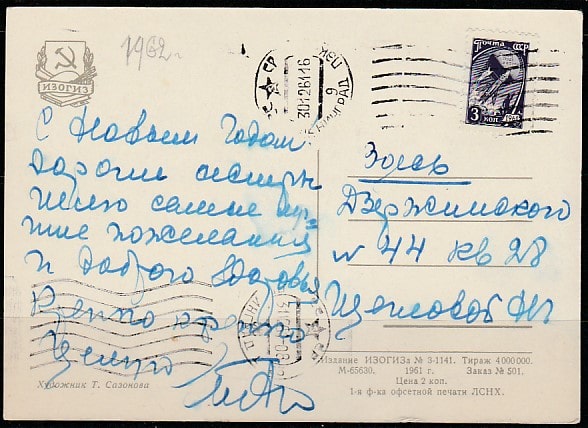 1962 г.
ИЗОГИЗ
30126116
ЛЕНИНГРАД
9
ПОЧТА СССР
3 коп.
С Новым Годом
Дорогие сестры
шлю самые луч
шие пожелания
и доброго здоровья
Крепко крепко
целую
Здесь
Дзержинского
№ 44 кв 28
Щегловой
Художник Т. Сазонова
Издание ИЗОГИЗа № 3-1141. Тираж 4 000 000.
М-65630. 1961 г. Заказ № 501.
Цена 2 коп.
1-я ф-ка офсетной печати ЛСНХ.